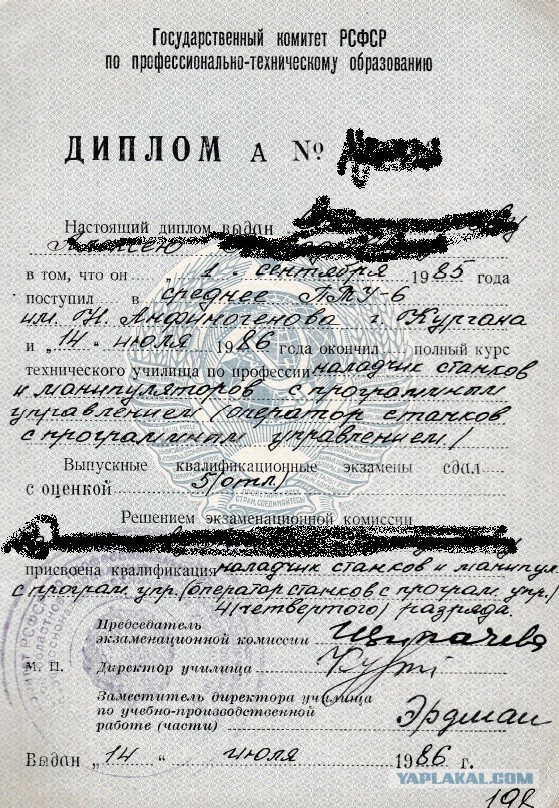 Государственный комитет РСФСР
по профессионально-техническому образованию
ДИПЛОМ А №
Настоящий диплом выдан
в том, что он „1“ сентября 1985 года
поступил в среднее ПТУ-6
им. Н. Анфиногенова г. Кургана
и „14“ июля 1986 года окончил полный курс
технического училища по профессии наладчик станков
и манипуляторов с программным
управлением /оператор станков
с программным управлением/
Выпускные квалификационные экзамены сдал
с оценкой 5(отл)
Решением экзаменационной комиссии
присвоена квалификация наладчик станков и манипул.
с програм. упр. (оператор станков с програм. упр.)
4(четвертого) разряда.
Председатель
экзаменационной комиссии
М. П. Директор училища
Заместитель директора училища
по учебно-производственной
работе (части) Эрдман
Выдан „14“ июля 1986 г.
YAPLAKAL.COM